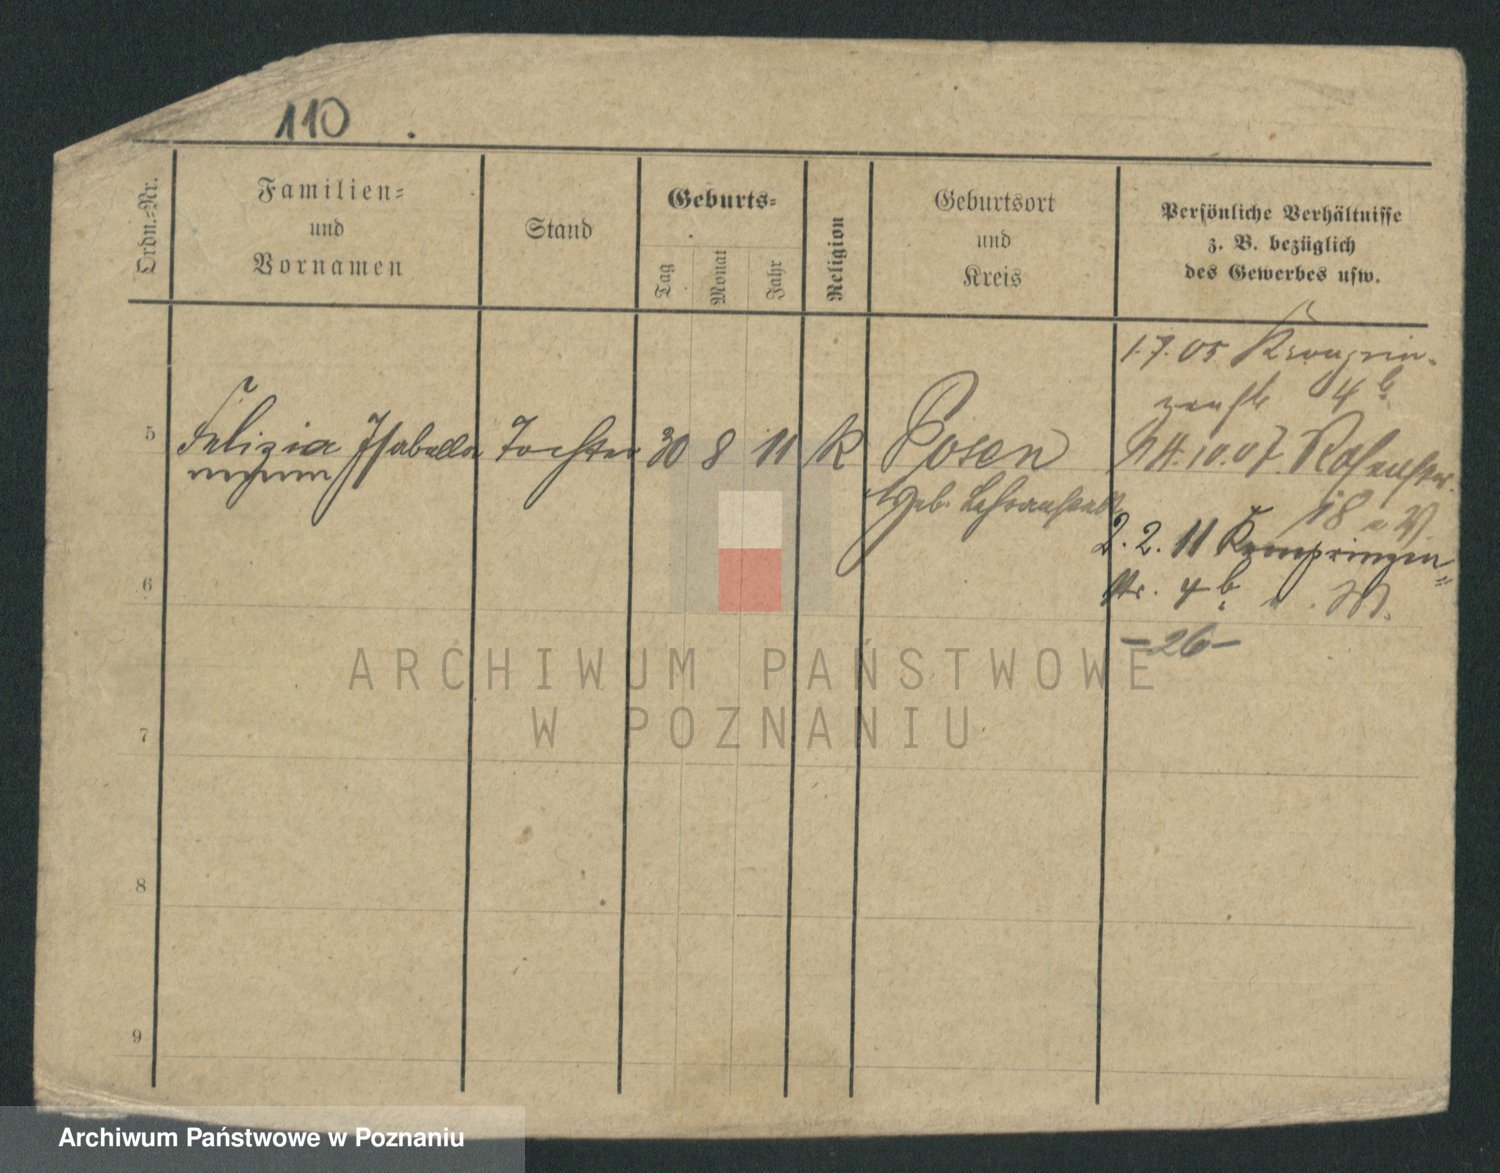 110.
Ordn.-Nr.
Familien-
und
Vornamen
Stand
Geburts-
Tag
Monat
Jahr
Religion
Geburtsort
und
Kreis
Persönliche Verhältnisse
z. B. bezüglich
des Gewerbes usw.
1.7.05 Kronprin-
zenstr 4b
5 Felizia Isabella Tochter 30 8 11 K Posen
Geb. Lehranstalt
11.10.07 Rosenstr.
18
2. 2. 11 Kronprinzen-
str. 4b
6
-26-
ARCHIWUM PAŃSTWOWE
W POZNANIU
7
8
9
Archiwum Państwowe w Poznaniu